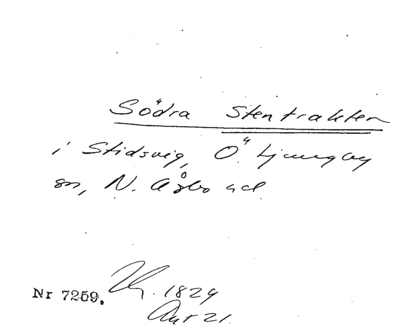 Södra Stentrakten
i Stidsvig, Ö. Ljungby
sn, N. Åsbo hd.
Nr 7259. 1829
21.